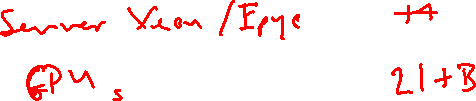 Server Xeon/Epyc
GPUs 21+B